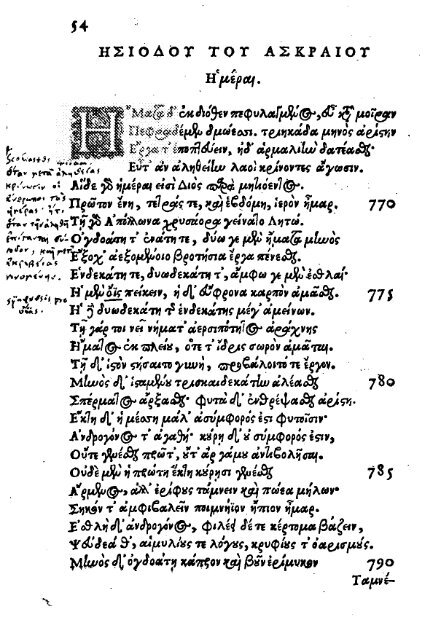 54
ΗΣΙΟΔΟΥ ΤΟΥ ΑΣΚΡΑΙΟΥ
Ημέραι.
ΗΜατα δ' ἐκ διόθεν πεφυλαγμένος, εὖ κατὰ μοῖραν
Πεφραδέμεν δμώεσσι. τριηκάδα μηνὸς ἀρίστην
Εργα τ' ἐποπτεύειν, ἠδ' ἁρμαλιὴν δατέασθαι.
Εὖτ' ἂν ἀληθείην λαοὶ κρίνοντες ἄγωσιν.
Αἵδε γὰρ ἡμέραι εἰσὶ Διὸς παρὰ μητιόεντος.
Πρῶτον ἔνη, τετράς τε, καὶ ἑβδόμη, ἱερὸν ἦμαρ. 770
Τῇ γὰρ Απόλλωνα χρυσάορα γείνατο Λητώ.
Ογδοάτη τ' ἐνάτη τε, δύω γε μὲν ἤματα μηνὸς
Εξοχ' ἀεξομένοιο βροτήσια ἔργα πένεσθαι.
Ενδεκάτη τε, δυωδεκάτη τ', ἄμφω γε μὲν ἐσθλαί·
Η μὲν ὄϊς πείκειν, ἡ δ' εὔφρονα καρπὸν ἀμᾶσθαι. 775
Η δὲ δυωδεκάτη τῆς ἑνδεκάτης μέγ' ἀμείνων.
Τῇ γάρ τοι νεῖ νήματ' ἀερσιπότητος ἀράχνης
Ηματος ἐκ πλείου, ὅτε τ' ἴδρις σωρὸν ἀμᾶται.
Τῇ δ' ἱστὸν στήσαιτο γυνὴ, προβάλοιτό τε ἔργον.
Μηνὸς δ' ἱσταμένου τρισκαιδεκάτην ἀλέασθαι 780
Σπέρματος ἄρξασθαι· φυτὰ δ' ἐνθρέψασθαι ἀρίστη.
Εκτη δ' ἡ μέσση μάλ' ἀσύμφορός ἐστι φυτοῖσιν·
Ανδρογόνος τ' ἀγαθή· κούρῃ δ' οὐ σύμφορός ἐστιν,
Οὔτε γενέσθαι πρῶτ', οὔτ' ἂρ γάμου ἀντιβολῆσαι.
Οὐδὲ μὲν ἡ πρώτη ἕκτη κούρῃσι γενέσθαι 785
Αρμενος, ἀλλ' ἐρίφους τάμνειν καὶ πώεα μήλων·
Σηκόν τ' ἀμφιβαλεῖν ποιμνήϊον ἤπιον ἦμαρ.
Εσθλὴ δ' ἀνδρογόνος, φιλέει δέ τε κέρτομα βάζειν,
Ψεύδεά θ', αἱμυλίους τε λόγους, κρυφίους τ' ὀαρισμούς.
Μηνὸς δ' ὀγδοάτῃ κάπρον καὶ βοῦν ἐρίμυκον 790
Ταμνέ-